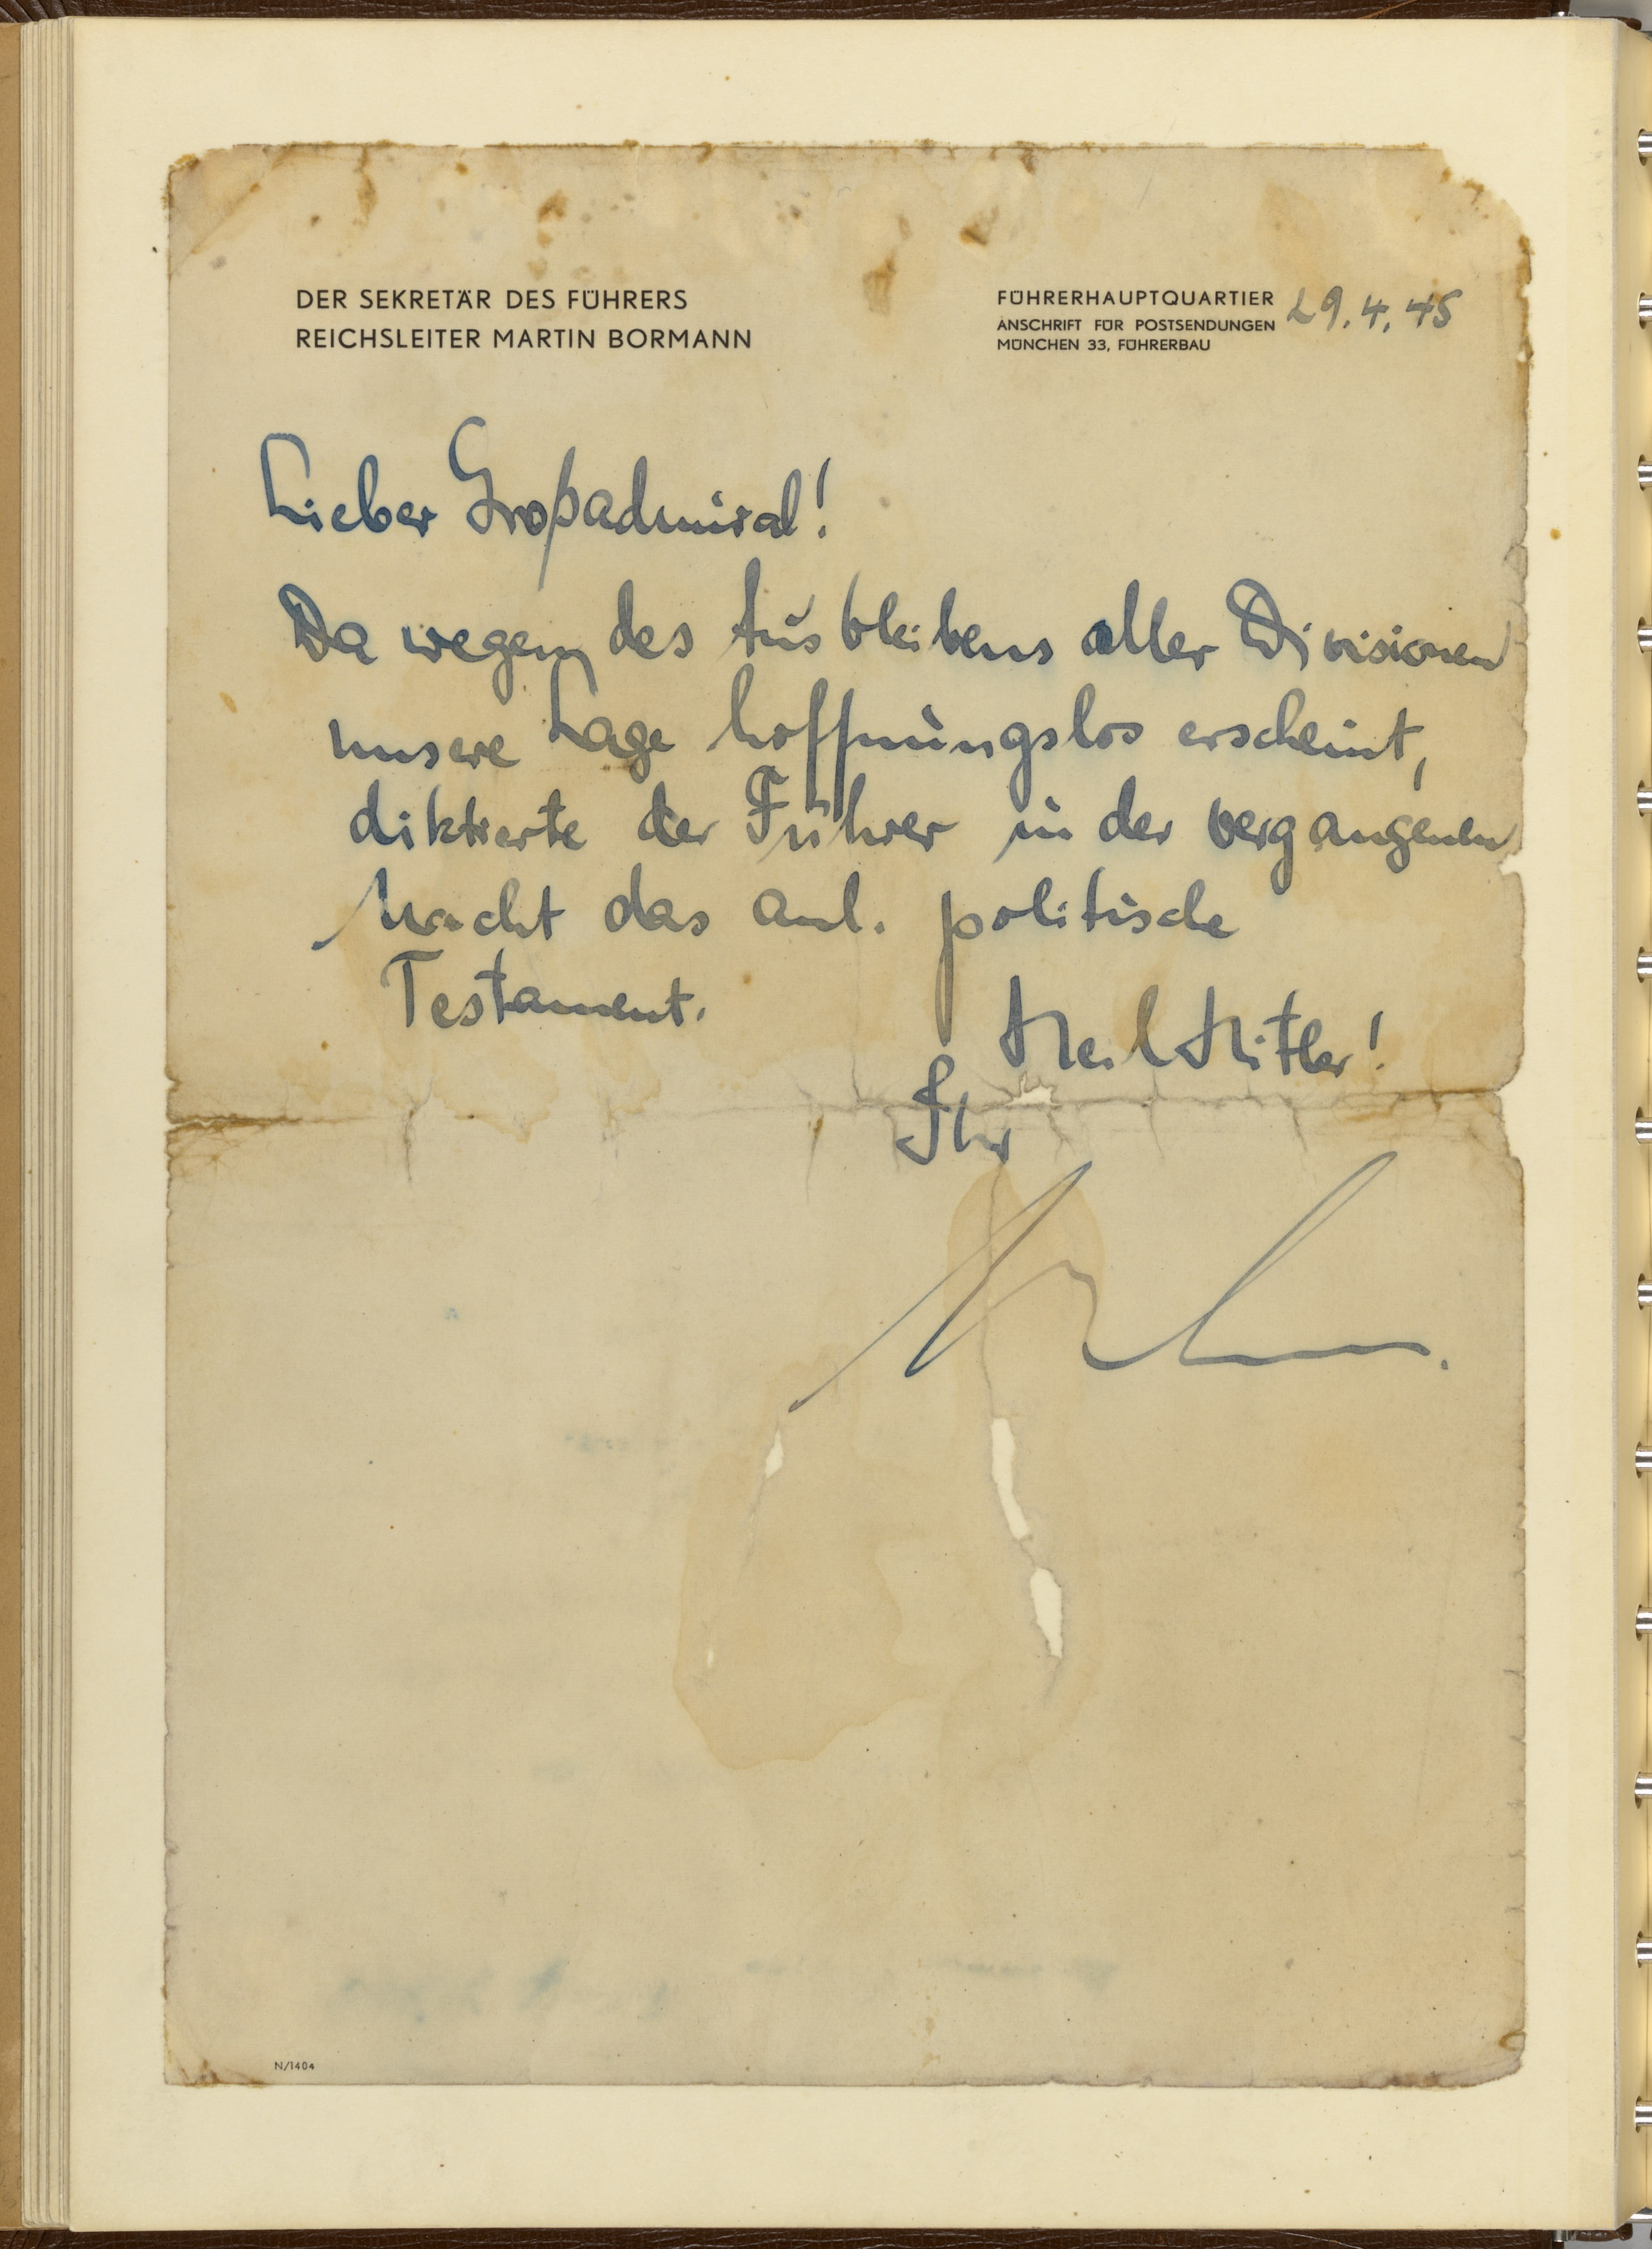 DER SEKRETÄR DES FÜHRERS
REICHSLEITER MARTIN BORMANN
FÜHRERHAUPTQUARTIER 29.4.45
ANSCHRIFT FÜR POSTSENDUNGEN
MÜNCHEN 33, FÜHRERBAU
Lieber Großadmiral!
Da wegen des Ausbleibens aller Divisionen
unsere Lage hoffnungslos erscheint,
diktierte der Führer in der vergangenen
Nacht das anl. politische
Testament.
Heil Hitler!
Ihr
N/1404